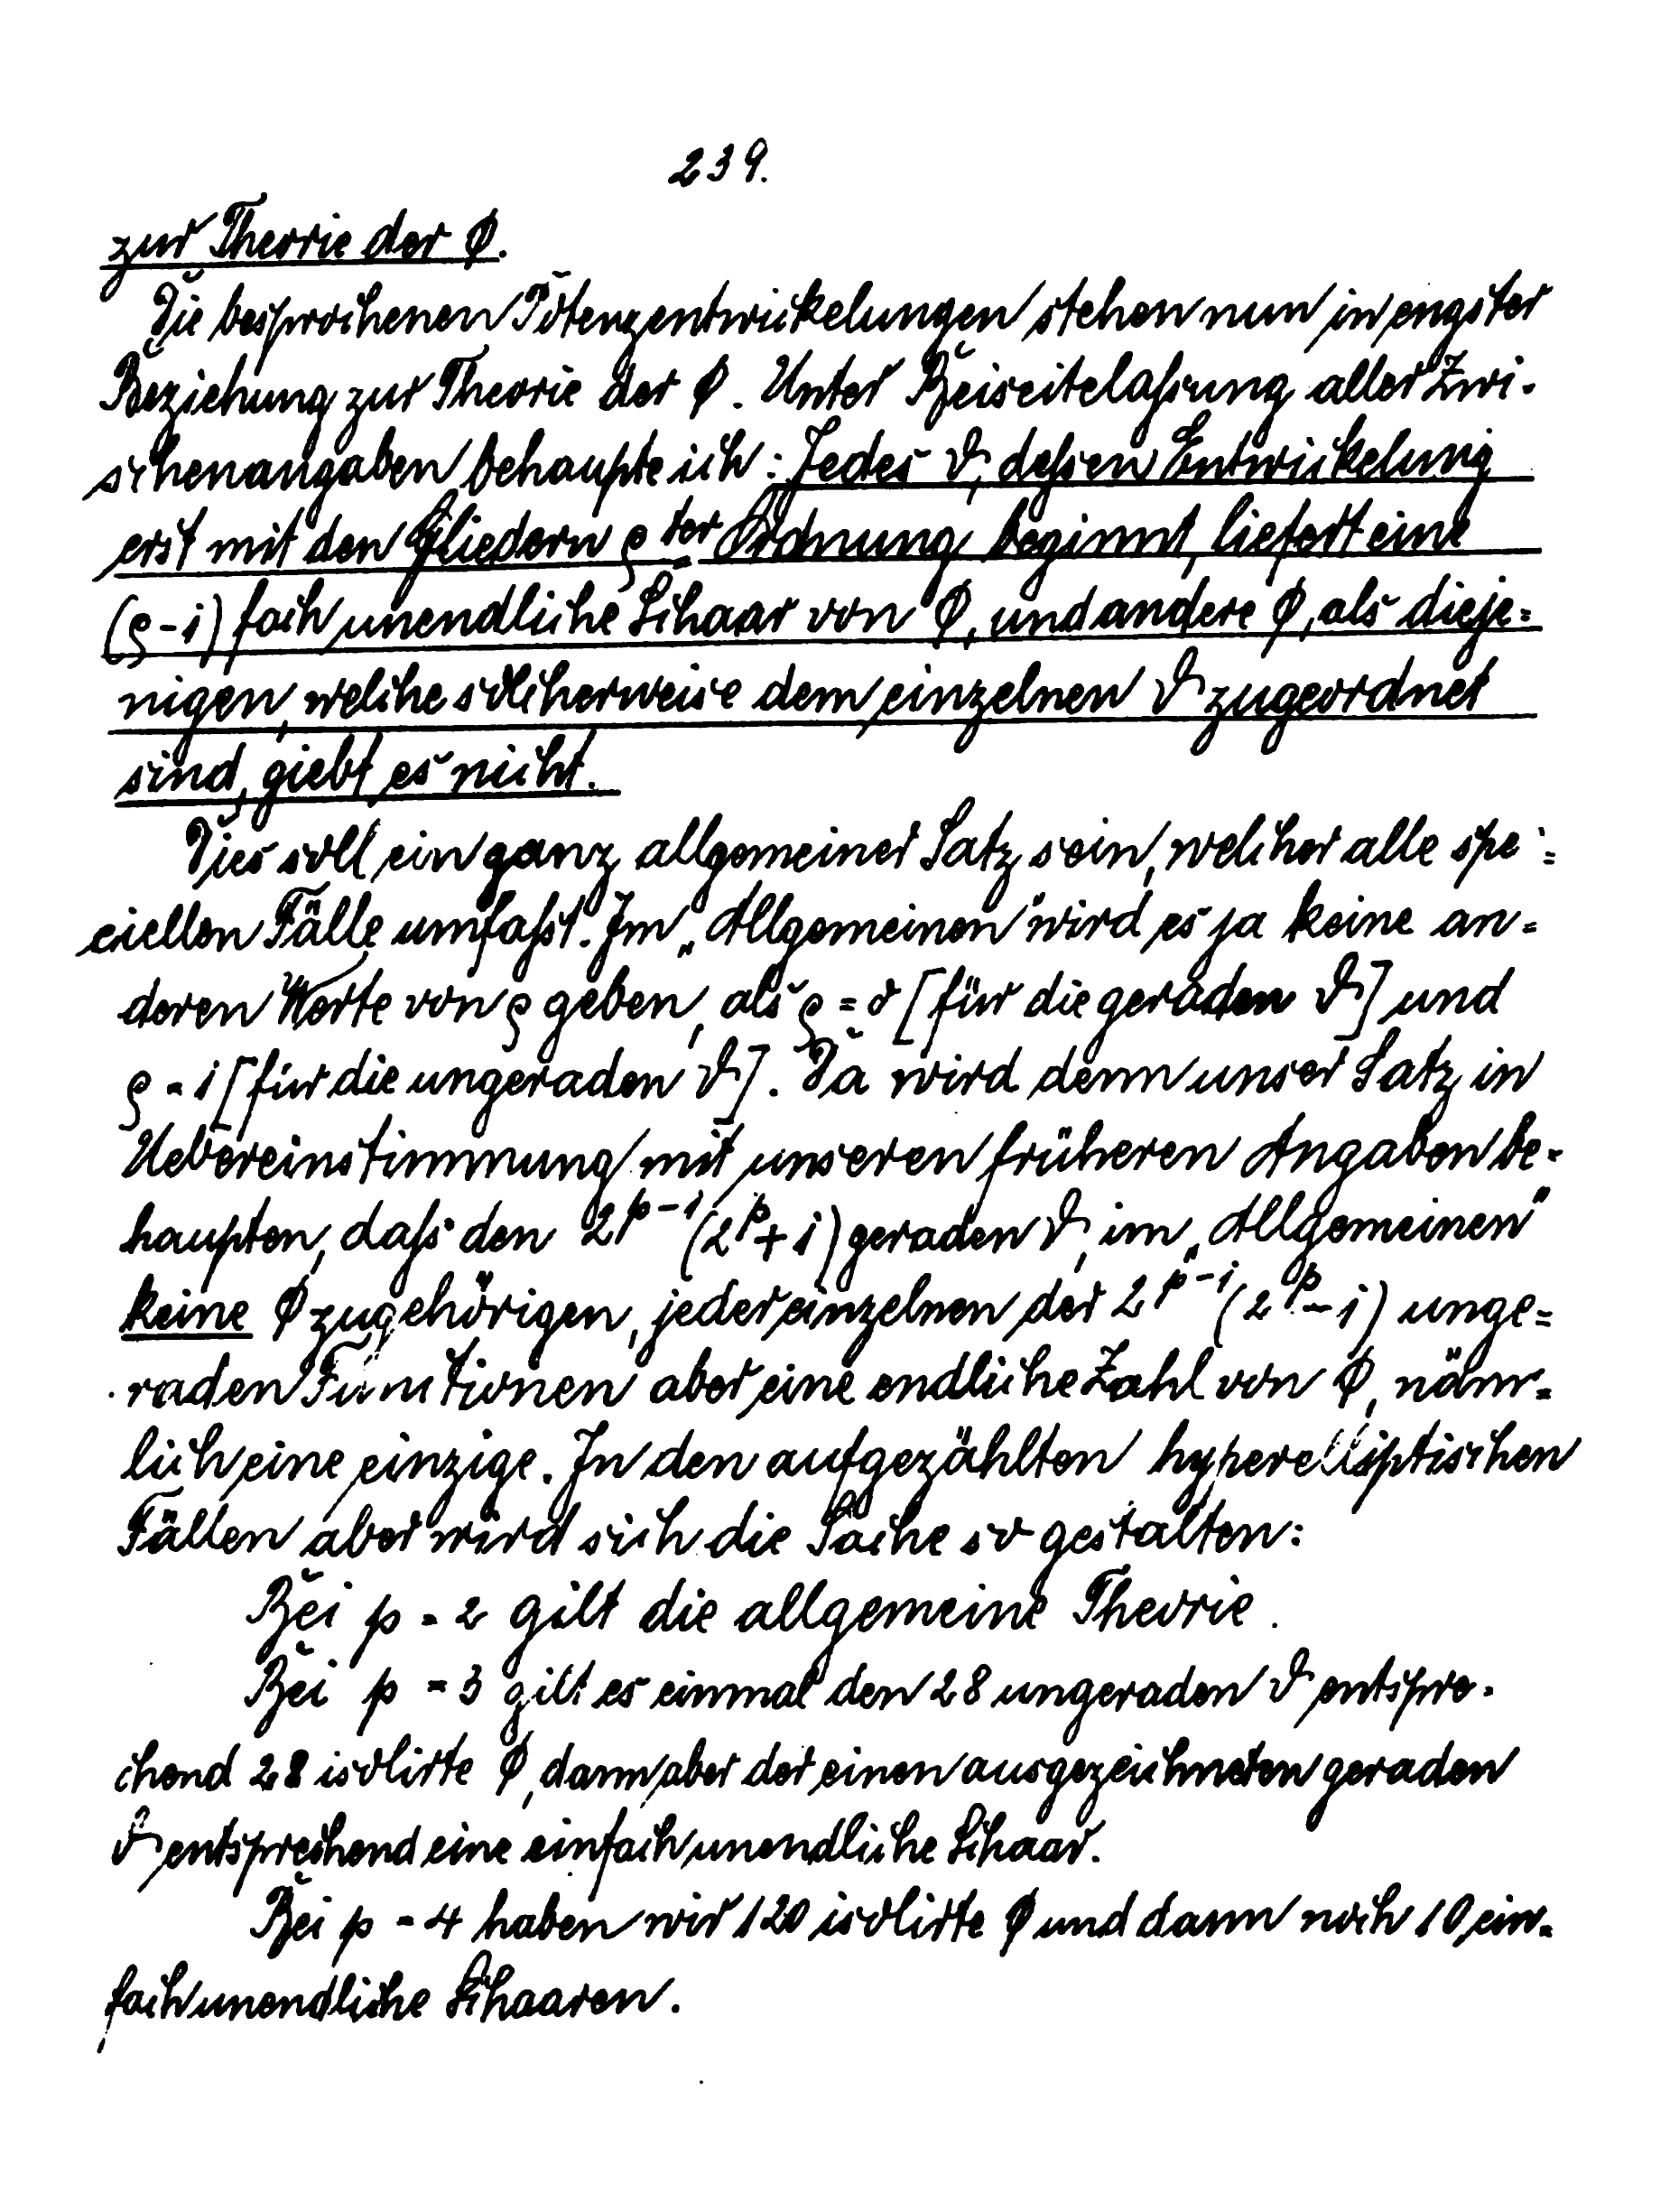 239.
zur Theorie der ϕ.
Die besprochenen Potenzentwickelungen stehen nun in engster
Beziehung zur Theorie der ϕ. Unter Beiseitelaßung aller Zwi-
schenangaben behaupte ich: Jedes ϑ, deßen Entwickelung
erst mit den Gliedern ρ ter Ordnung beginnt, liefert eine
(ρ-1) fach unendliche Schaar von ϕ, und andere ϕ, als dieje=
nigen, welche solcherweise dem einzelnen ϑ zugeordnet
sind, giebt es nicht.
Dies soll ein ganz allgemeiner Satz sein, welcher alle spe=
ciellen Fälle umfaßt. Im „Allgemeinen" wird es ja keine an=
deren Werte von ρ geben, als ρ = 0 [für die geraden ϑ] und
ρ = 1 [für die ungeraden ϑ]. Da wird denn unser Satz in
Uebereinstimmung mit unseren früheren Angaben be-
haupten, daß den 2^{p-1} (2^p + 1) geraden ϑ, im „Allgemeinen"
keine ϕ zugehörigen, jeder einzelnen der 2^{p-1} (2^p - 1) unge=
raden Functionen aber eine endliche Zahl von ϕ, näm=
lich eine einzige. In den aufgezählten hyperelliptischen
Fällen aber wird sich die Sache so gestalten:
Bei p = 2 gilt die allgemeine Theorie.
Bei p = 3 gibt es einmal den 28 ungeraden ϑ entspre-
chend 28 isolirte ϕ, dann aber der einen ausgezeichneten geraden
ϑ entsprechend eine einfach unendliche Schaar.
Bei p = 4 haben wir 120 isolirte ϕ und dann noch 10 ein=
fach unendliche Schaaren.